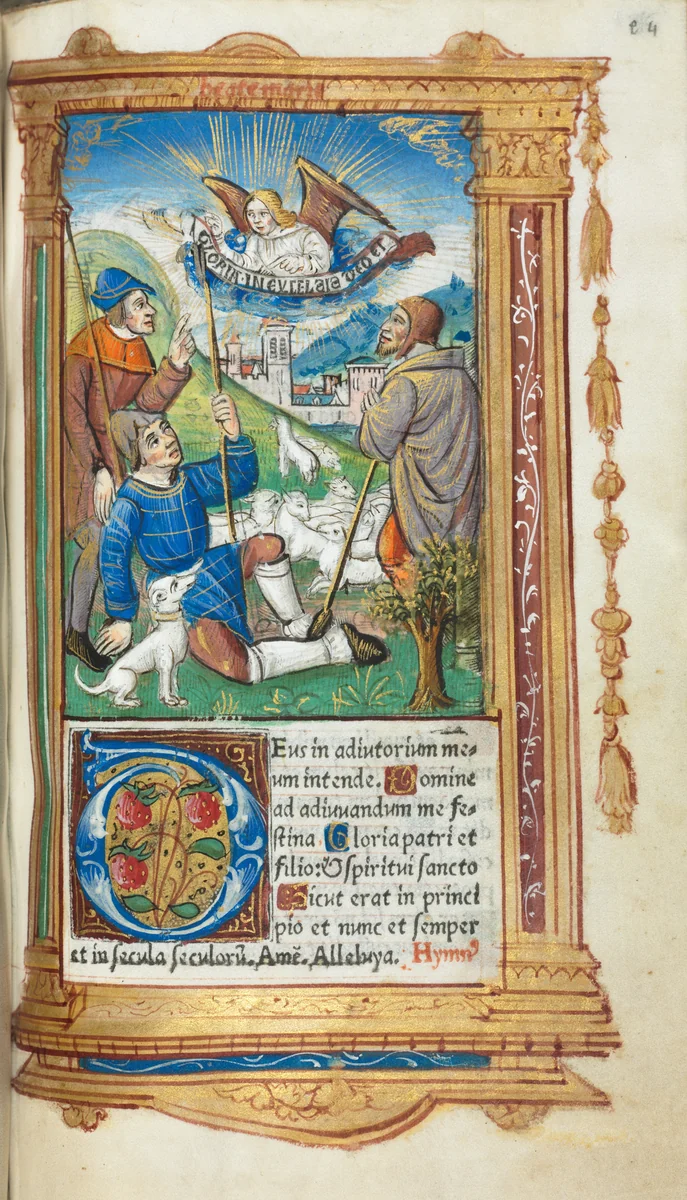 e 4
beate marie
GLORIA·IN EXCELSIS DEO ET
Deus in adiutorium me-
um intende. Domine
ad adiuuandum me fe-
stina Gloria patri et
filio: & spiritui sancto
Sicut erat in princi
pio et nunc et semper
et in secula seculorū. Amē. Alleluya. Hymnꝰ